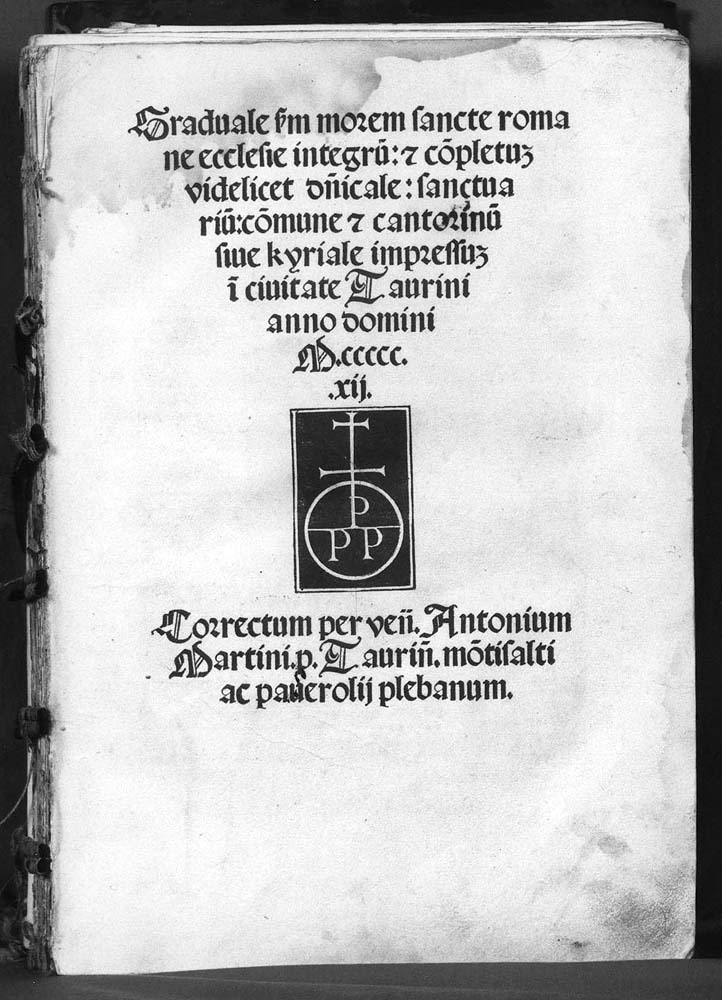 Graduale ẜm morem sancte roma
ne ecclesie integrū: ⁊ cōpletuꝫ
videlicet dn̄icale: sanctua
riū: cōmune ⁊ cantorinū
siue kyriale impressuꝫ
ī ciuitate Taurini
anno domini
M.ccccc.
.xij.
P
P P
Correctum per ven̄. Antonium
Martini. p. Taurin̄. mōtisalti
ac paūerolij plebanum.